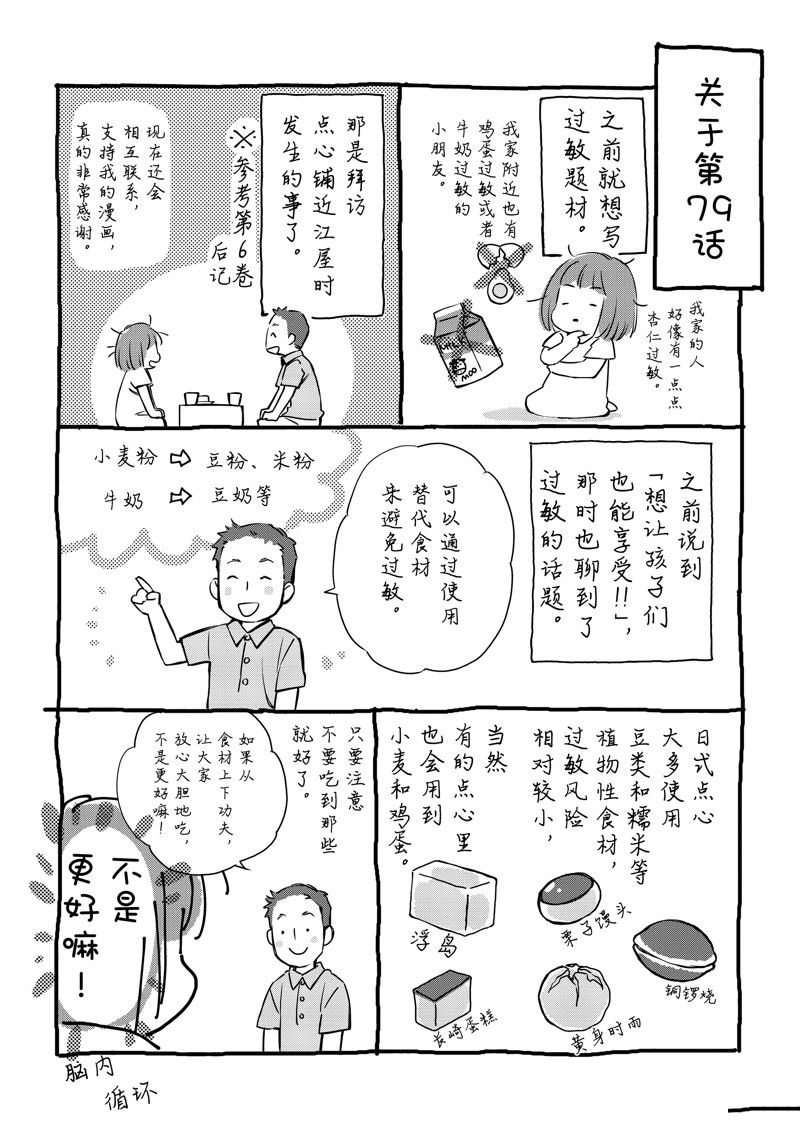 关于第
79
话
之前就想写
过敏题材。
我家附近也有
鸡蛋过敏或者
牛奶过敏的
小朋友。
MILK
MOO
我家的人
好像有一点点
杏仁过敏。
那是拜访
点心铺近江屋时
发生的事了。
※参考第6卷
后记
现在还会
相互联系,
支持我的漫画,
真的非常感谢。
之前说到
「想让孩子们
也能享受!!」,
那时也聊到了
过敏的话题。
可以通过使用
替代食材
来避免过敏。
小麦粉⇨豆粉、米粉
牛奶⇨豆奶等
日式点心
大多使用
豆类和糯米等
植物性食材,
过敏风险
相对较小,
当然
有的点心里
也会用到
小麦和鸡蛋。
浮岛
栗子馒头
铜锣烧
长崎蛋糕
黄身时雨
只要注意
不要吃到那些
就好了。
如果从
食材上下功夫,
让大家
放心大胆地吃,
不是更好嘛!
不是
更好嘛!
脑内
循环